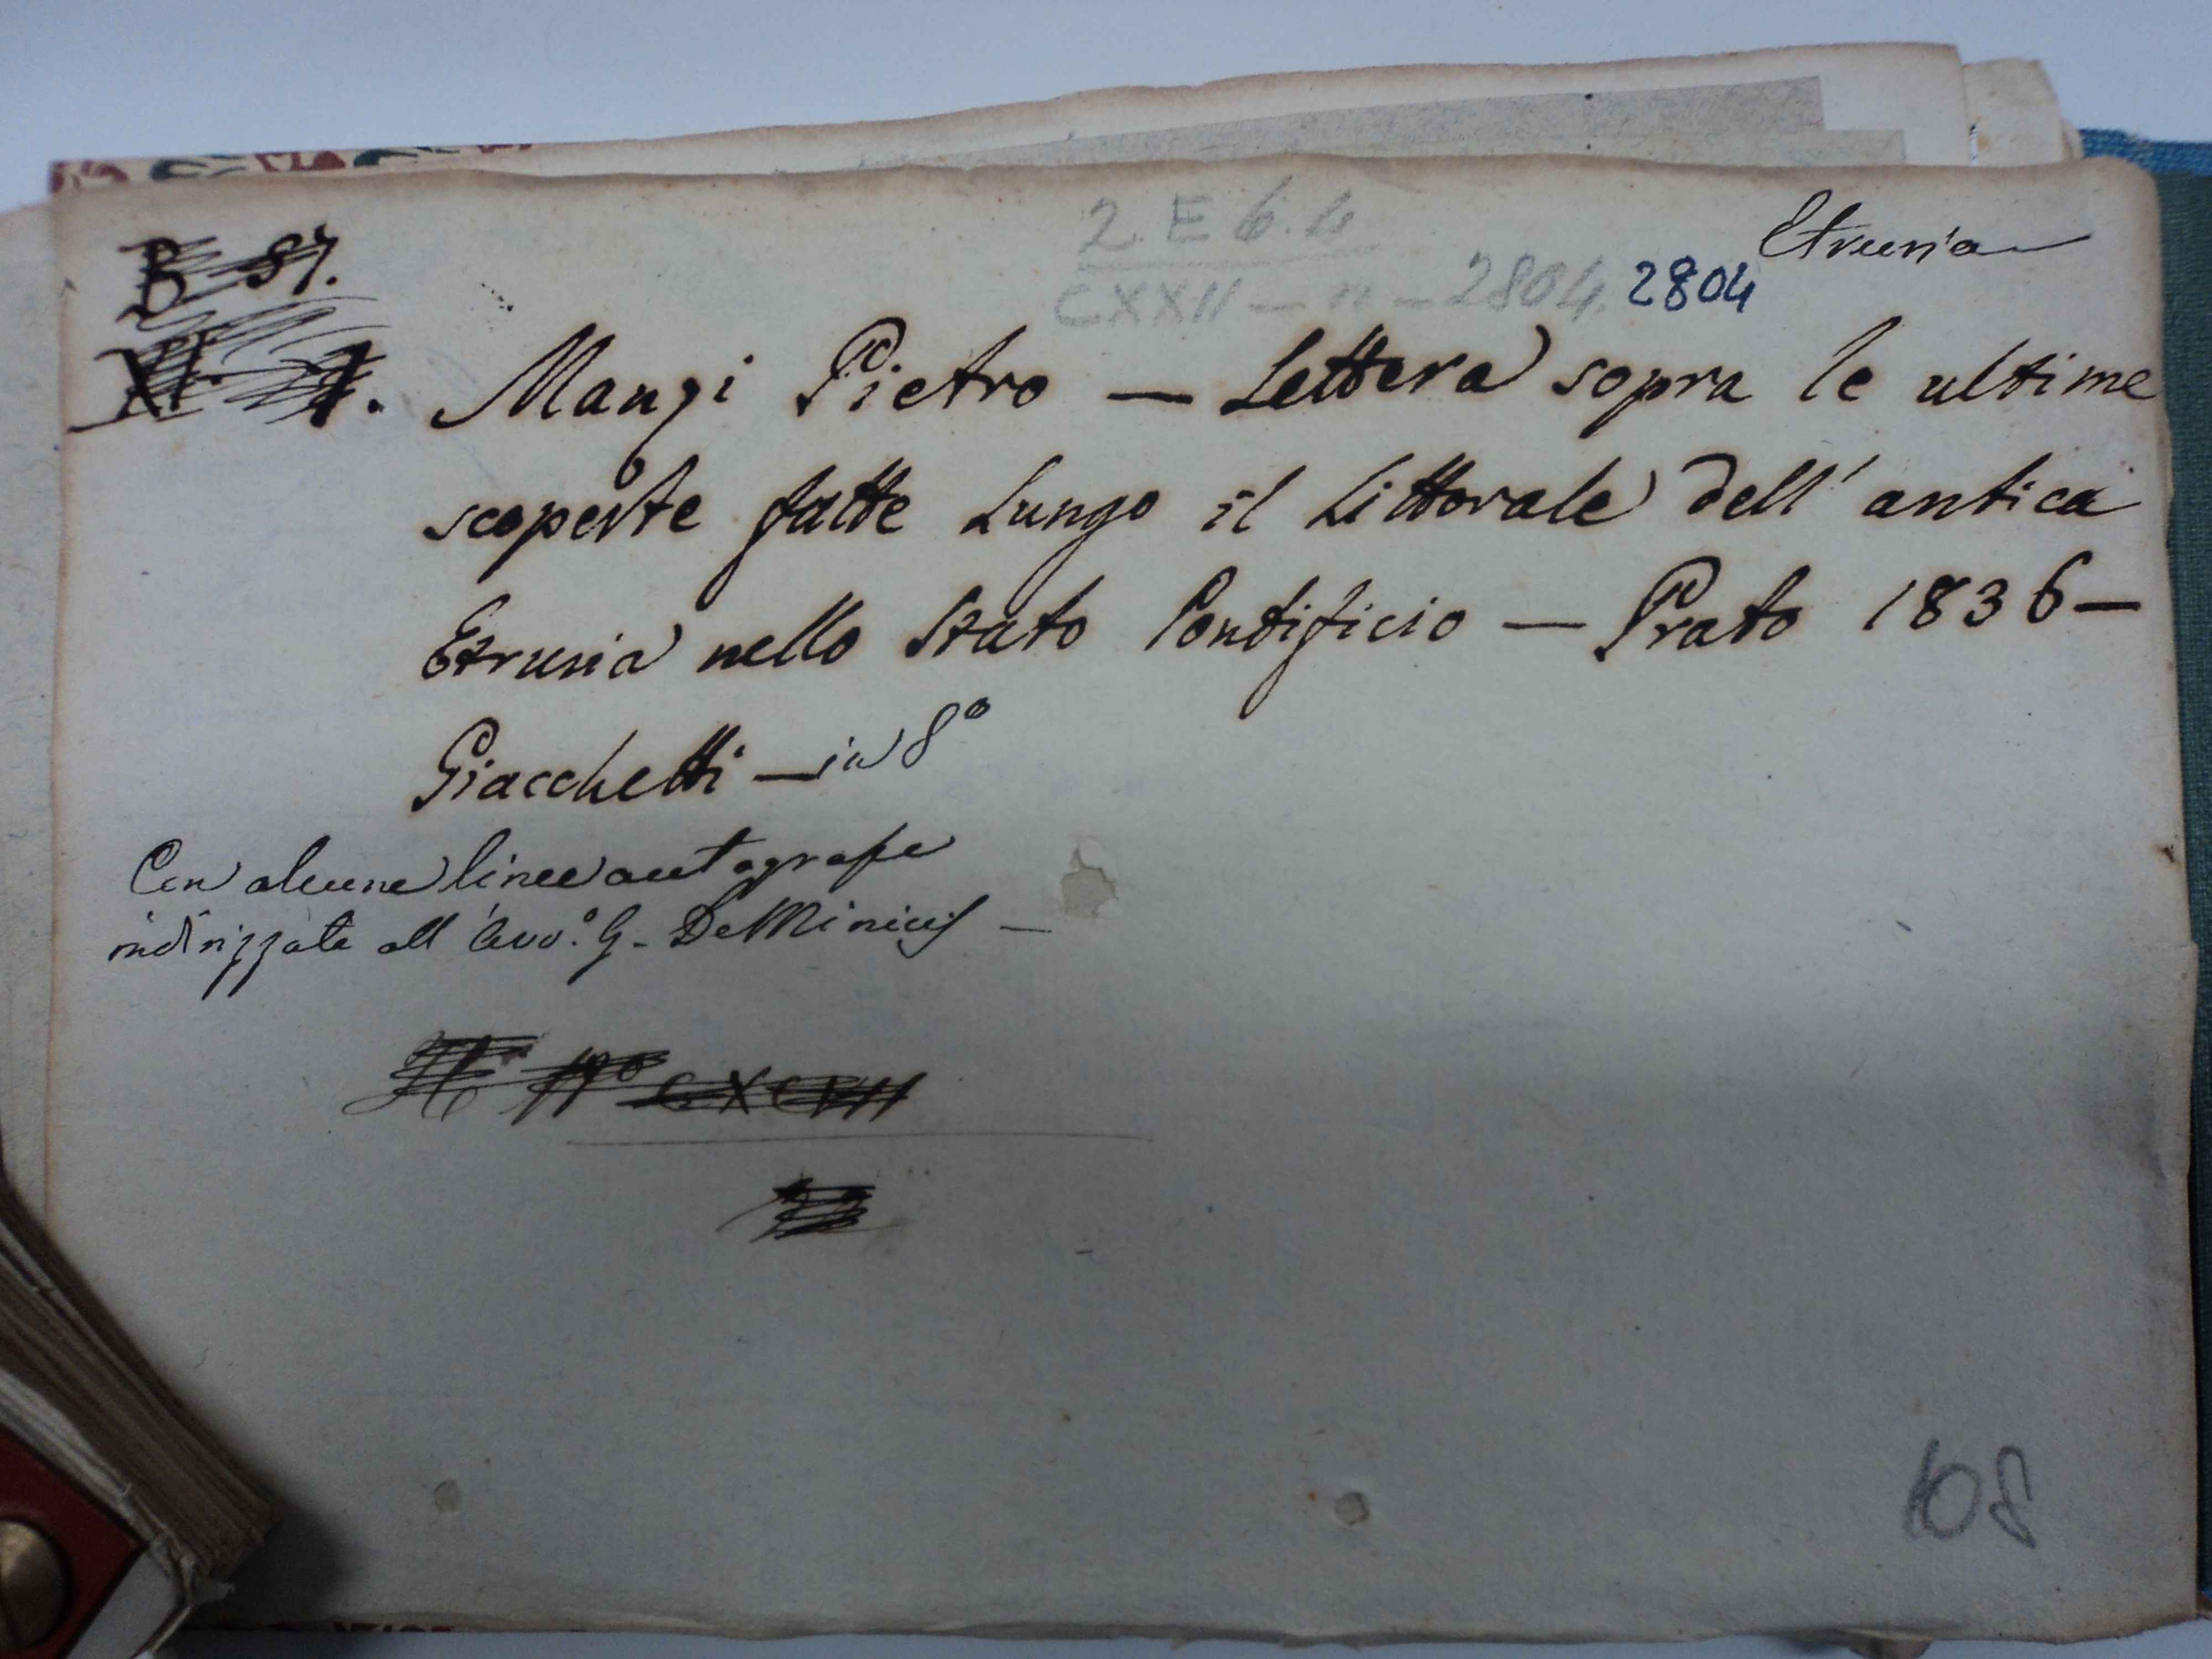 Etruria
2 E 6. 4
CXXII - n - 2804. 2804
B 87.
Manzi Pietro — Lettera sopra le ultime
scoperte fatte lungo il littorale dell' antica
Etruria nello Stato Pontificio — Prato 1836 —
Giacchetti — in 8°
Con alcune linee autografe
indirizzate all' Avv.° G. De Minicis —
CXCVII
108